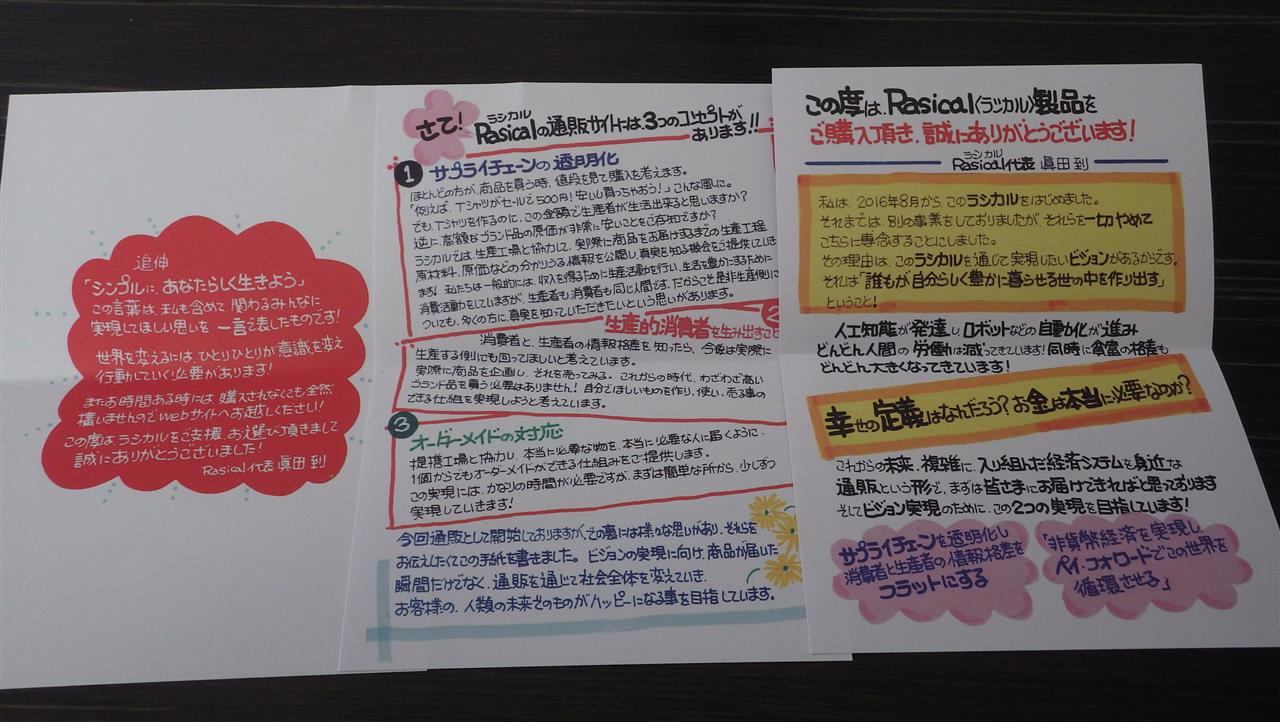 この度は、Rasical(ラシカル)製品を
ご購入頂き、誠にありがとうございます!
ラシカル
Rasical代表 眞田 到
私は、2016年8月から、このラシカルをはじめました。
それまでは、別の事業をしておりましたが、それらを一切やめて
こちらに専念することにしました。
その理由は、このラシカルを通じて実現したいビジョンがあるからです。
それは「誰もが自分らしく豊かに暮らせる世の中を作り出す」
ということ!
人工知能が発達し、ロボットなどの自動化が進み
どんどん人間の労働は減ってきています!同時に貧富の格差も
どんどん大きくなってきています!
幸せの定義はなんだろう?お金は本当に必要なのか?
これからの未来、複雑に、入り組んだ経済システムを身近な
通販という形で、まずは皆さまにお届けできればと思っております
そしてビジョン実現のために、この2つの実現を目指しています!
サプライチェーンを透明化し
消費者と生産者の情報格差を
フラットにする
「非貨幣経済を実現し
ペイ・フォワードでこの世界を
循環させる」
さて!
ラシカル
Rasicalの通販サイトには、3つのコンセプトが
あります!!
1 サプライチェーンの透明化
ほとんどの方が、商品を買う時、値段を見て購入を考えます。
「例えば、Tシャツがセールで500円!安いし買っちゃおう!」こんな風に。
でも、Tシャツを作るのに、この金額で生産者が生活出来ると思いますか?
逆に、高額なブランド品の原価が非常に安いことをご存知ですか?
ラシカルでは、生産工場と協力して、実際に商品をお届けするまでの生産工程
原材料、原価などの分かりうる情報を公開し、真実を知る機会をご提供していき
ます!私たちは一般的には、収入を得るために生産活動を行い、生活を豊かにするために
消費活動をしていますが、生産者も、消費者も同じ人間です。だからこそ是非生産側に
ついても、多くの方に、真実を知っていただきたいという思いがあります。
2
生産的消費者を生み出すこと
消費者と、生産者の情報格差を知ったら、今後は実際に
生産する側にも回ってほしいと考えています。
実際に商品を企画し、それを売ってみる。これからの時代、わざわざ高い
ブランド品を買う必要はありません!自分でほしいものを作り、使い、売る事の
できる仕組を実現しようと考えています。
3 オーダーメイドの対応
提携工場と協力し、本当に必要な物を、本当に必要な人に届くように、
1個からでもオーダーメイドができる仕組みをご提供します。
この実現には、かなりの時間が必要ですが、まずは簡単な所から、少しずつ
実現していきます!
今回通販として開始しておりますが、その裏には様々な思いがあり、それらを
お伝えしたくてこの手紙を書きました。ビジョンの実現に向け、商品が届いた
瞬間だけでなく、通販を通じて社会全体を変えていき、
お客様の、人類の未来そのものがハッピーになる事を目指しています。
追伸
「シンプルに、あなたらしく生きよう」
この言葉は、私も含めて、関わるみんなに
実現してほしい思いを一言で表したものです!
世界を変えるには、ひとりひとりが意識を変え
行動していく必要があります!
またお時間ある時には購入されなくても全然
構いませんのでwebサイトへお越しください!
この度はラシカルをご支援、お選び頂きまして
誠にありがとうございました!
Rasical代表 眞田 到